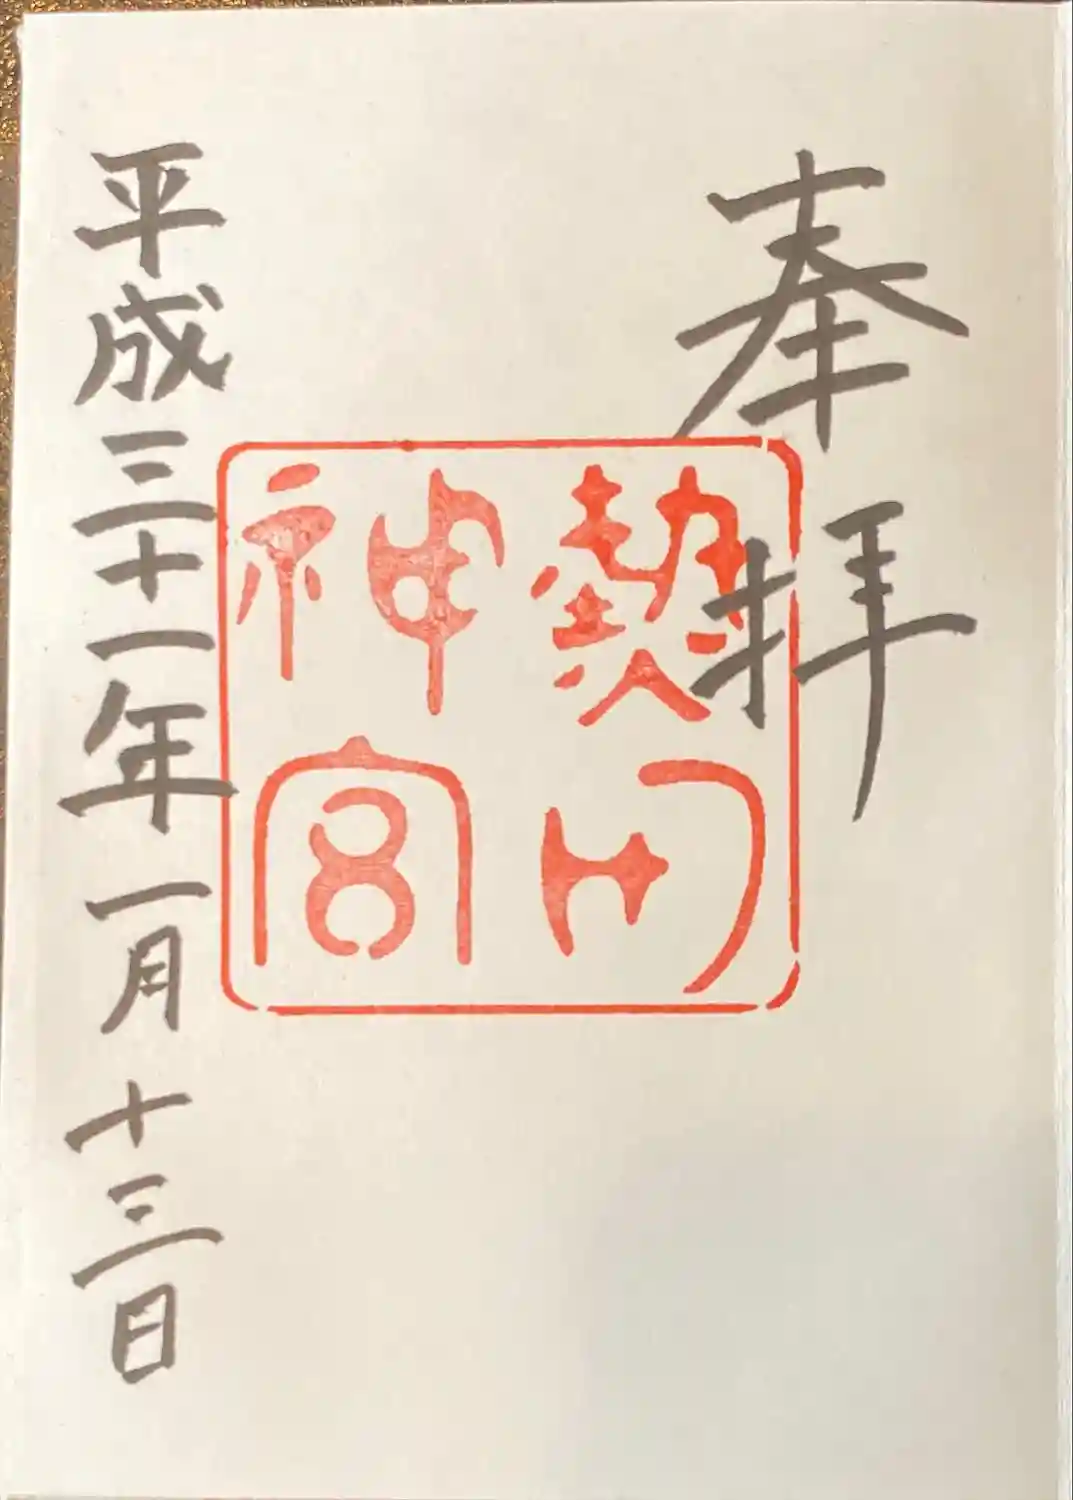 奉拝
熱田
神宮
平成三十一年一月十三日